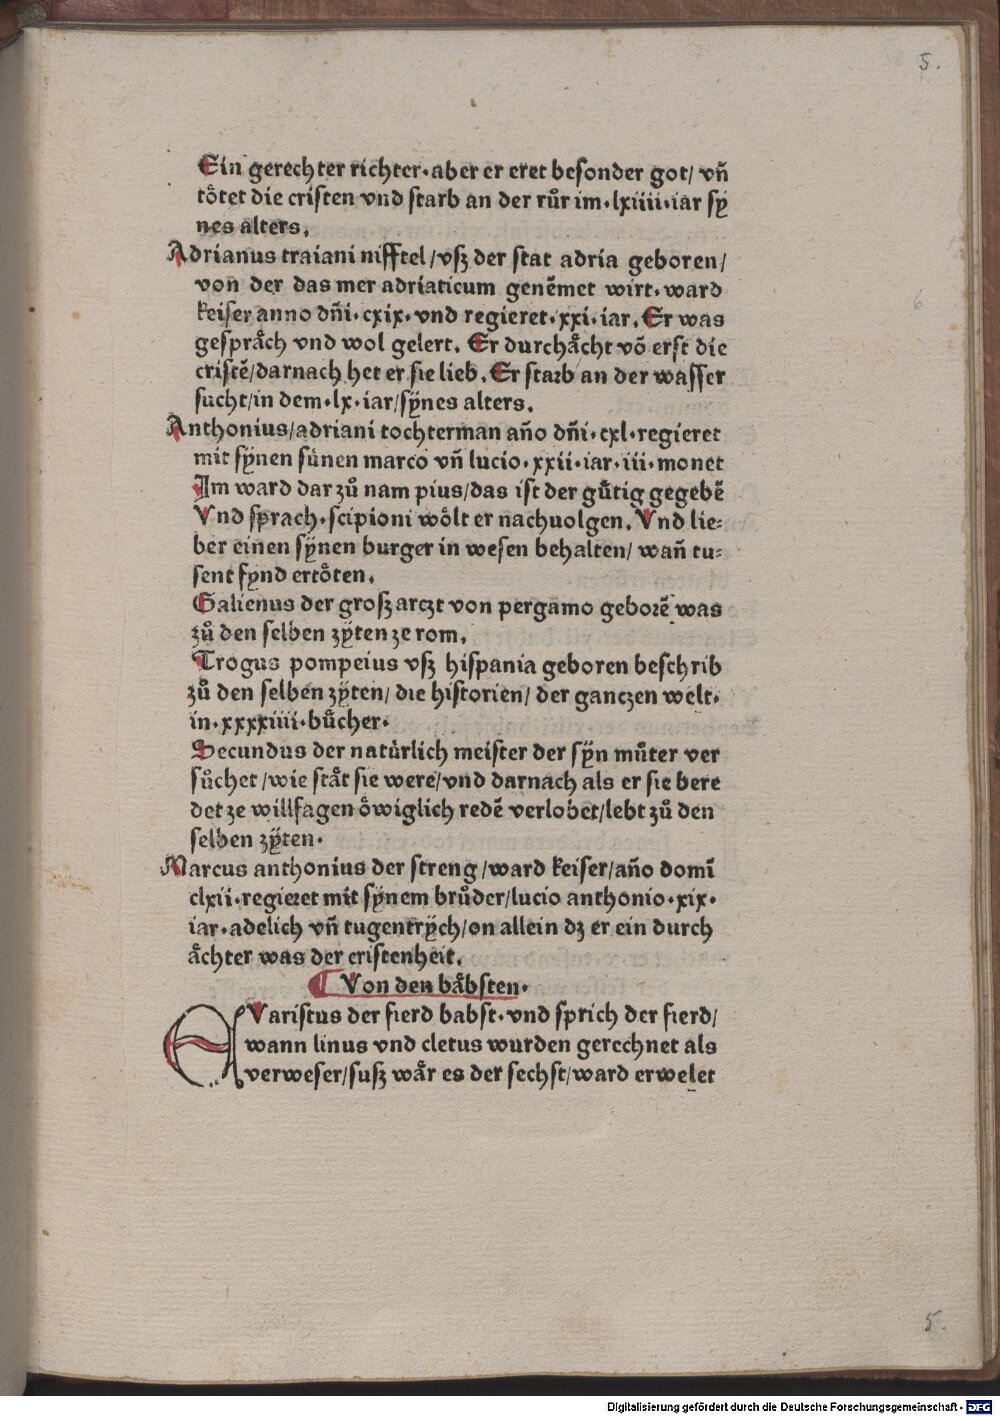 5.
Ein gerechter richter·aber er eret besonder got/ vn̄
toͤtet die cristen vnd starb an der ruͦr im·lxiiii·iar sy
nes alters.
Adrianus traiani nifftel/vsz der stat adria geboren/
von der das mer adriaticum genēmet wirt·ward
keiser anno dn̄i·cxix·vnd regieret·xxi·iar. Er was
gespraͤch vnd wol gelert. Er durchaͤcht vō erst die
cristē/darnach het er sie lieb. Er starb an der wasser
sucht/in dem·lx·iar/sÿnes alters.
Anthonius/adriani tochterman an̄o dn̄i·cxl·regieret
mit sÿnen sünen marco vn̄ lucio·xxii·iar·iii·monet
Im ward dar zuͦ nam pius/das ist der guͤtig gegebē
Vnd sprach·scipioni woͤlt er nachuolgen. Vnd lie⸗
ber einen sÿnen burger in wesen behalten/ wan̄ tu⸗
sent fynd ertoͤten.
Galienus der grosz arczt von pergamo geborē was
zuͦ den selben zÿten ze rom.
Trogus pompeius vsz hispania geboren beschrib
zuͦ den selben zÿten/ die historien/ der ganczen welt·
in·xxxxiiii·buͤcher·
Secundus der natürlich meister der sÿn muͦter ver
suͦchet/wie staͤt sie were/vnd darnach als er sie bere
det ze willfagen oͤwiglich redē verlobet/lebt zuͦ den
selben zÿten·
Marcus anthonius der streng/ward keiser/an̄o domī
clxii·regieret mit sÿnem bruͦder/lucio anthonio·xix·
iar·adelich vn̄ tugentrÿch/on allein dz er ein durch
aͤchter was der cristenheit.
Von den baͤbsten·
EVaristus der fierd babst·vnd sprich der fierd/
wann linus vnd cletus wurden gerechnet als
verweser/susz waͤr es der sechst/ward erwelet
5.
Digitalisierung gefördert durch die Deutsche Forschungsgemeinschaft - DFG